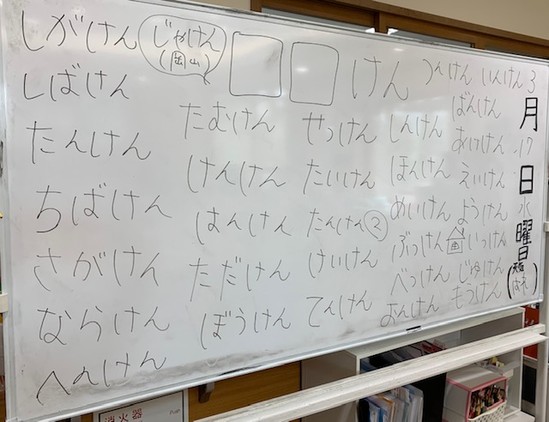 しがけん
しばけん
たんけん
ちばけん
さがけん
ならけん
へんけん
じゃけん
(岡山)
たむけん
けんけん
はんけん
ただけん
ぼうけん
けん
せっけん
たいけん
たんけん②
けいけん
てんけん
つんけん
しんけん
ほんけん
めいけん
ぶっけん
べっけん
いんけん
ばんけん
えいけん
ようけん
いっけん
じゅけん
もうけん
3月17日水曜日
(天気 はれ)
消火器